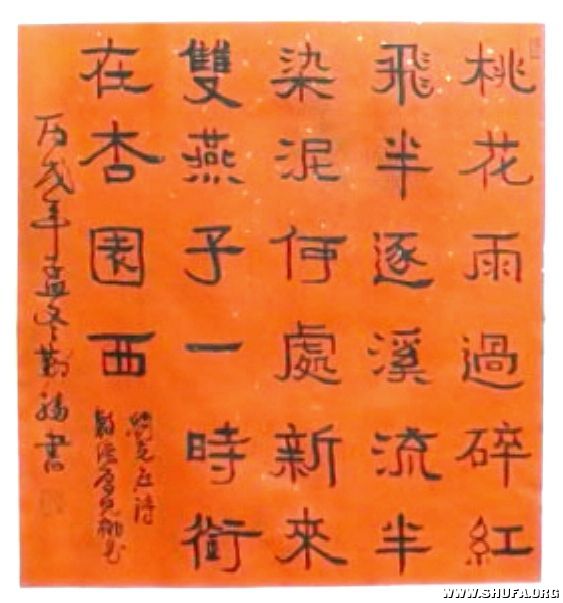 桃花雨過碎紅
飛半逐溪流半
染泥何處新來
雙燕子一時銜
在杏園西
詩
敷淺原見桃花
丙戌年孟冬書
WWW.SHUFA.ORG